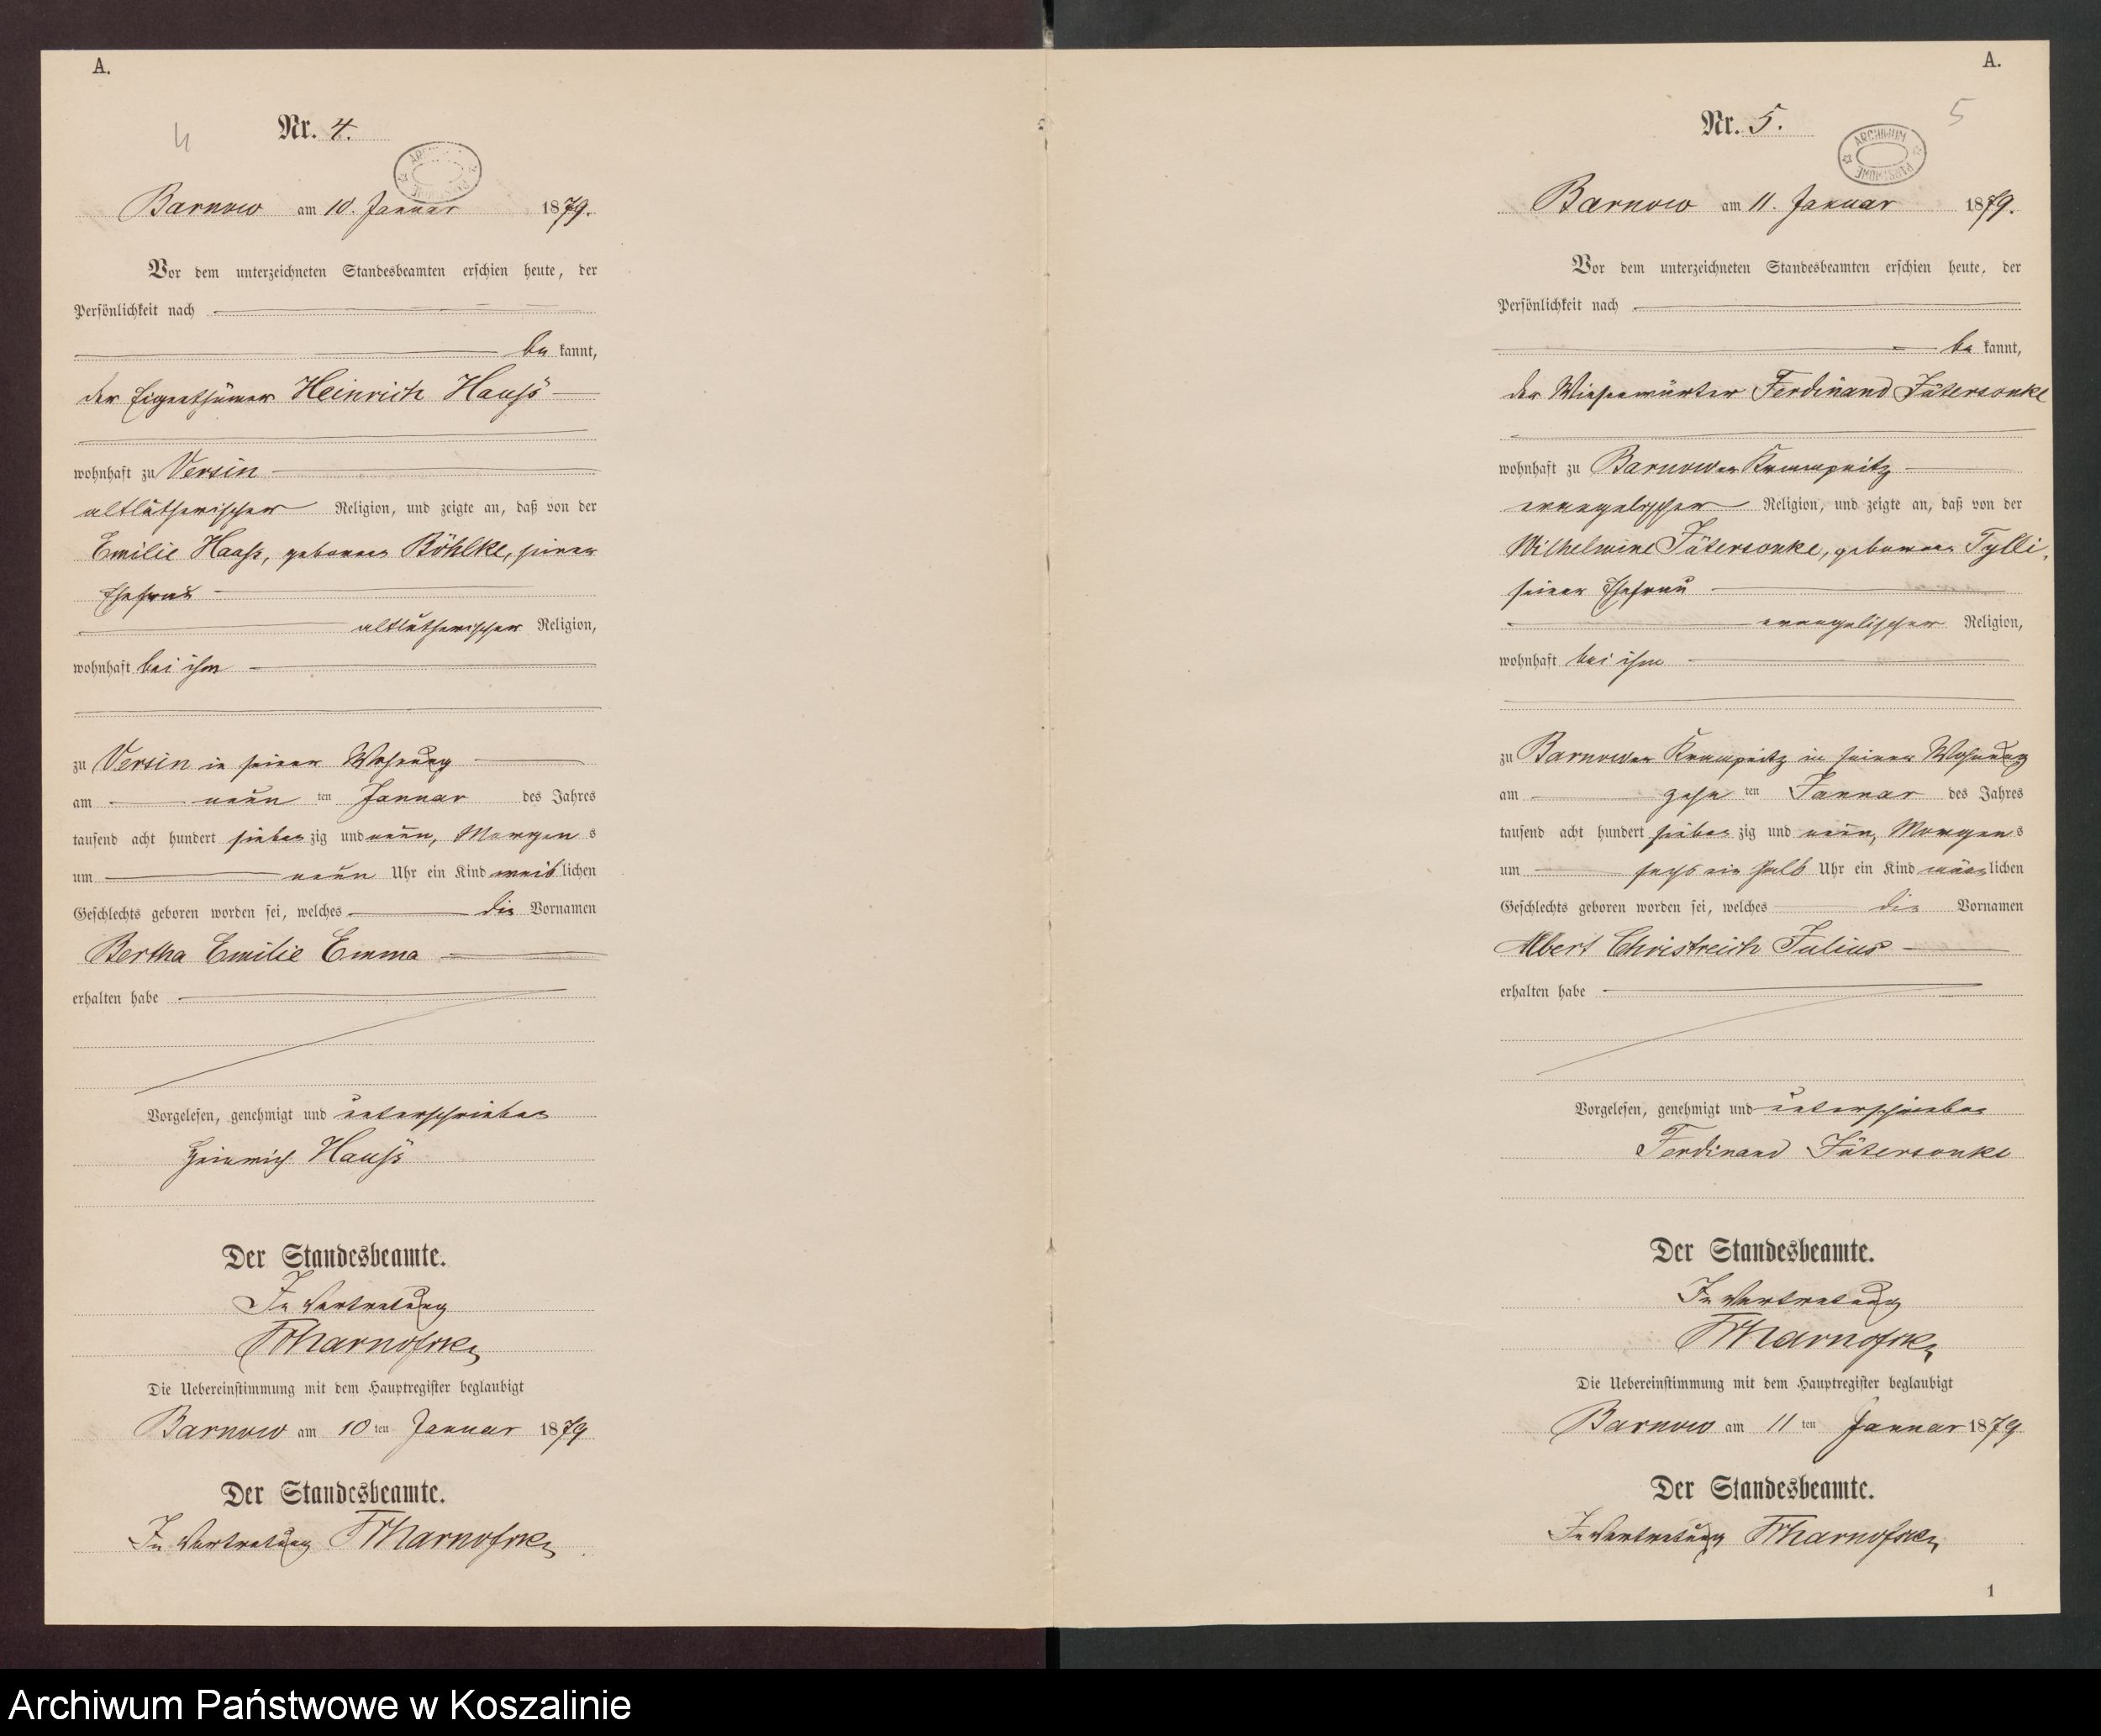 A.
4
Nr. 4.
Barnow am 10. Januar 1879.
Vor dem unterzeichneten Standesbeamten erschien heute, der
Persönlichkeit nach
be kannt,
der Eigenthümer Heinrich Haass
wohnhaft zu Versin
altlutherischer Religion, und zeigte an, daß von der
Emilie Haass, geborenen Böhlke, seiner
Ehefrau
altlutherischer Religion,
wohnhaft bei ihm
zu Versin in seiner Wohnung
am neun ten Januar des Jahres
tausend acht hundert sieben zig und neun, Morgen s
um neun Uhr ein Kind weib lichen
Geschlechts geboren worden sei, welches die Vornamen
Bertha Emilie Emma
erhalten habe
Vorgelesen, genehmigt und unterschrieben
Heinrich Haass
Der Standesbeamte.
In Vertretung
Die Uebereinstimmung mit dem Hauptregister beglaubigt
Barnow am 10 ten Januar 1879
Der Standesbeamte.
In Vertretung
A.
5
Nr. 5.
ARCHIWUM
Barnow am 11. Januar 1879.
Vor dem unterzeichneten Standesbeamten erschien heute, der
Persönlichkeit nach
be kannt,
der Wiesenwärter Ferdinand Jätersonke
wohnhaft zu Barnower Krampnitz
evangelischer Religion, und zeigte an, daß von der
Wilhelmine Jätersonke, geborenen Tylli,
seiner Ehefrau
evangelischer Religion,
wohnhaft bei ihm
zu Barnower Krampnitz in seiner Wohnung
am zehn ten Januar des Jahres
tausend acht hundert sieben zig und neun, Morgen s
um sechs ein halb Uhr ein Kind männ lichen
Geschlechts geboren worden sei, welches die Vornamen
Albert Christreich Julius
erhalten habe
Vorgelesen, genehmigt und unterschrieben
Ferdinand Jätersonke
Der Standesbeamte.
In Vertretung
Die Uebereinstimmung mit dem Hauptregister beglaubigt
Barnow am 11 ten Januar 1879
Der Standesbeamte.
In Vertretung
1
Archiwum Państwowe w Koszalinie